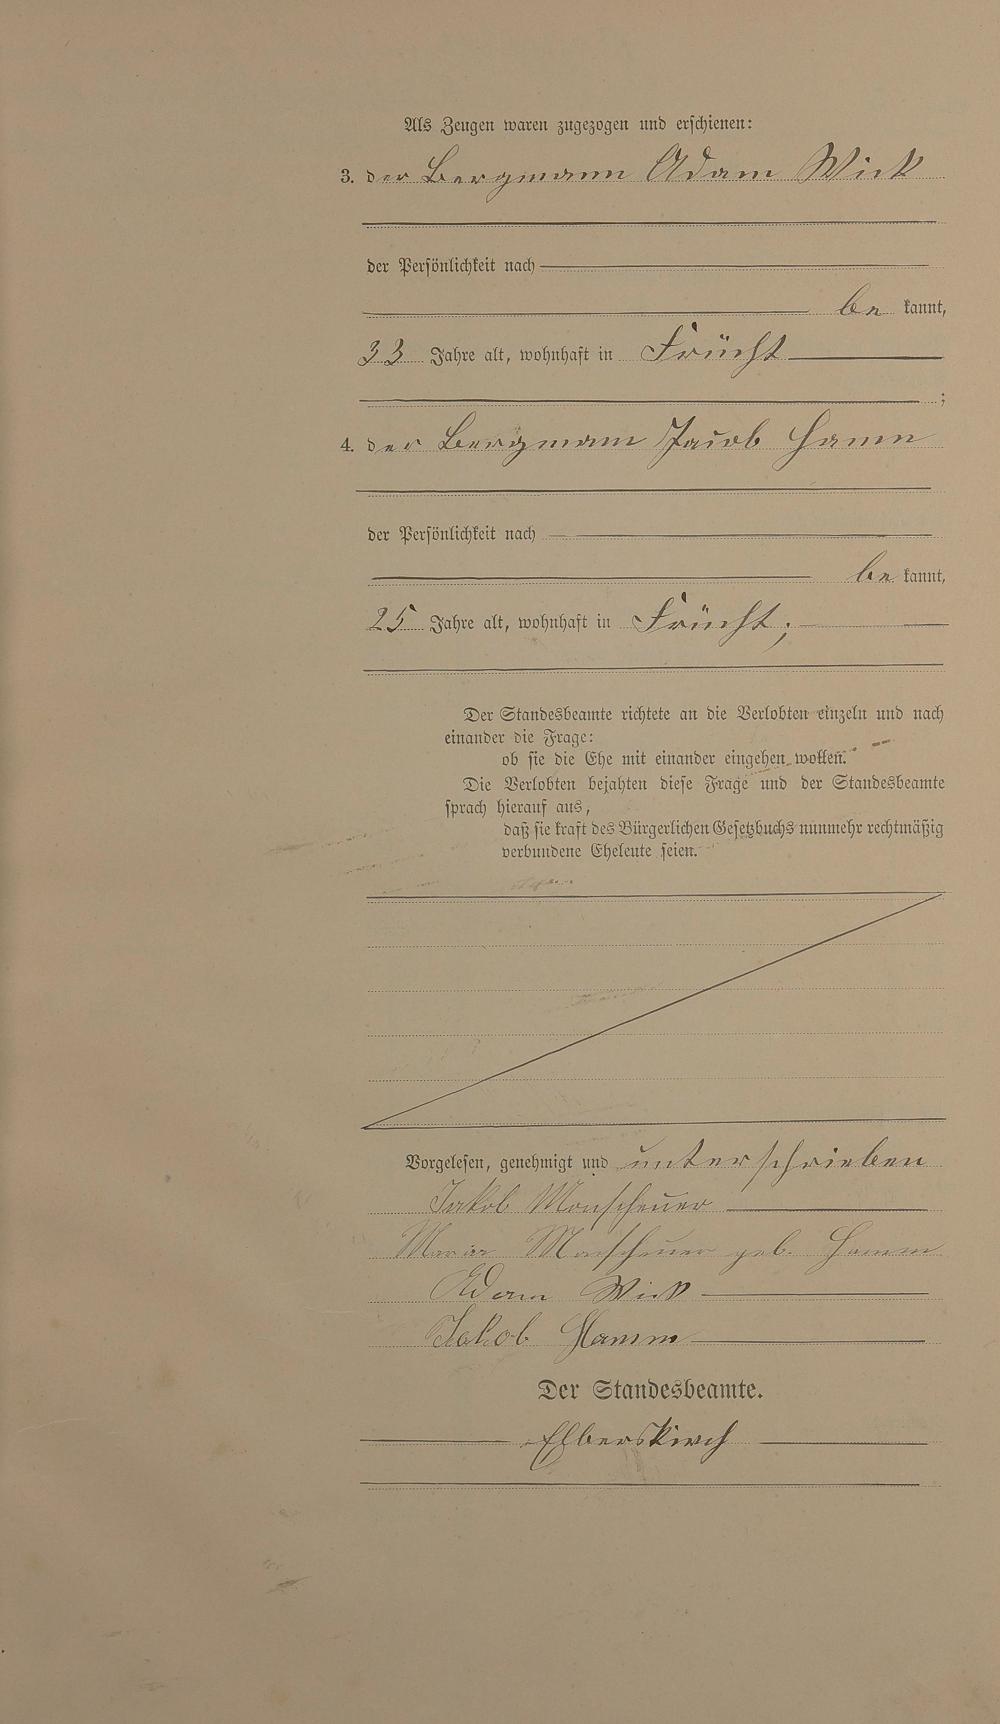 Als Zeugen waren zugezogen und erschienen:
3. der Bergmann Adam Wick
der Persönlichkeit nach
be kannt,
33 Jahre alt, wohnhaft in Frücht
;
4. der Bergmann Jacob Hamm
der Persönlichkeit nach
be kannt,
25 Jahre alt, wohnhaft in Frücht;
Der Standesbeamte richtete an die Verlobten einzeln und nach
einander die Frage:
ob sie die Ehe mit einander eingehen wollen.
Die Verlobten bejahten diese Frage und der Standesbeamte
sprach hierauf aus,
daß sie kraft des Bürgerlichen Gesetzbuchs nunmehr rechtmäßig
verbundene Eheleute seien.
Vorgelesen, genehmigt und unterschrieben
Jakob Monscheuer
Maria Monscheuer geb. Hamm
Adam Wick
Jakob Hamm
Der Standesbeamte.
Elberskirch